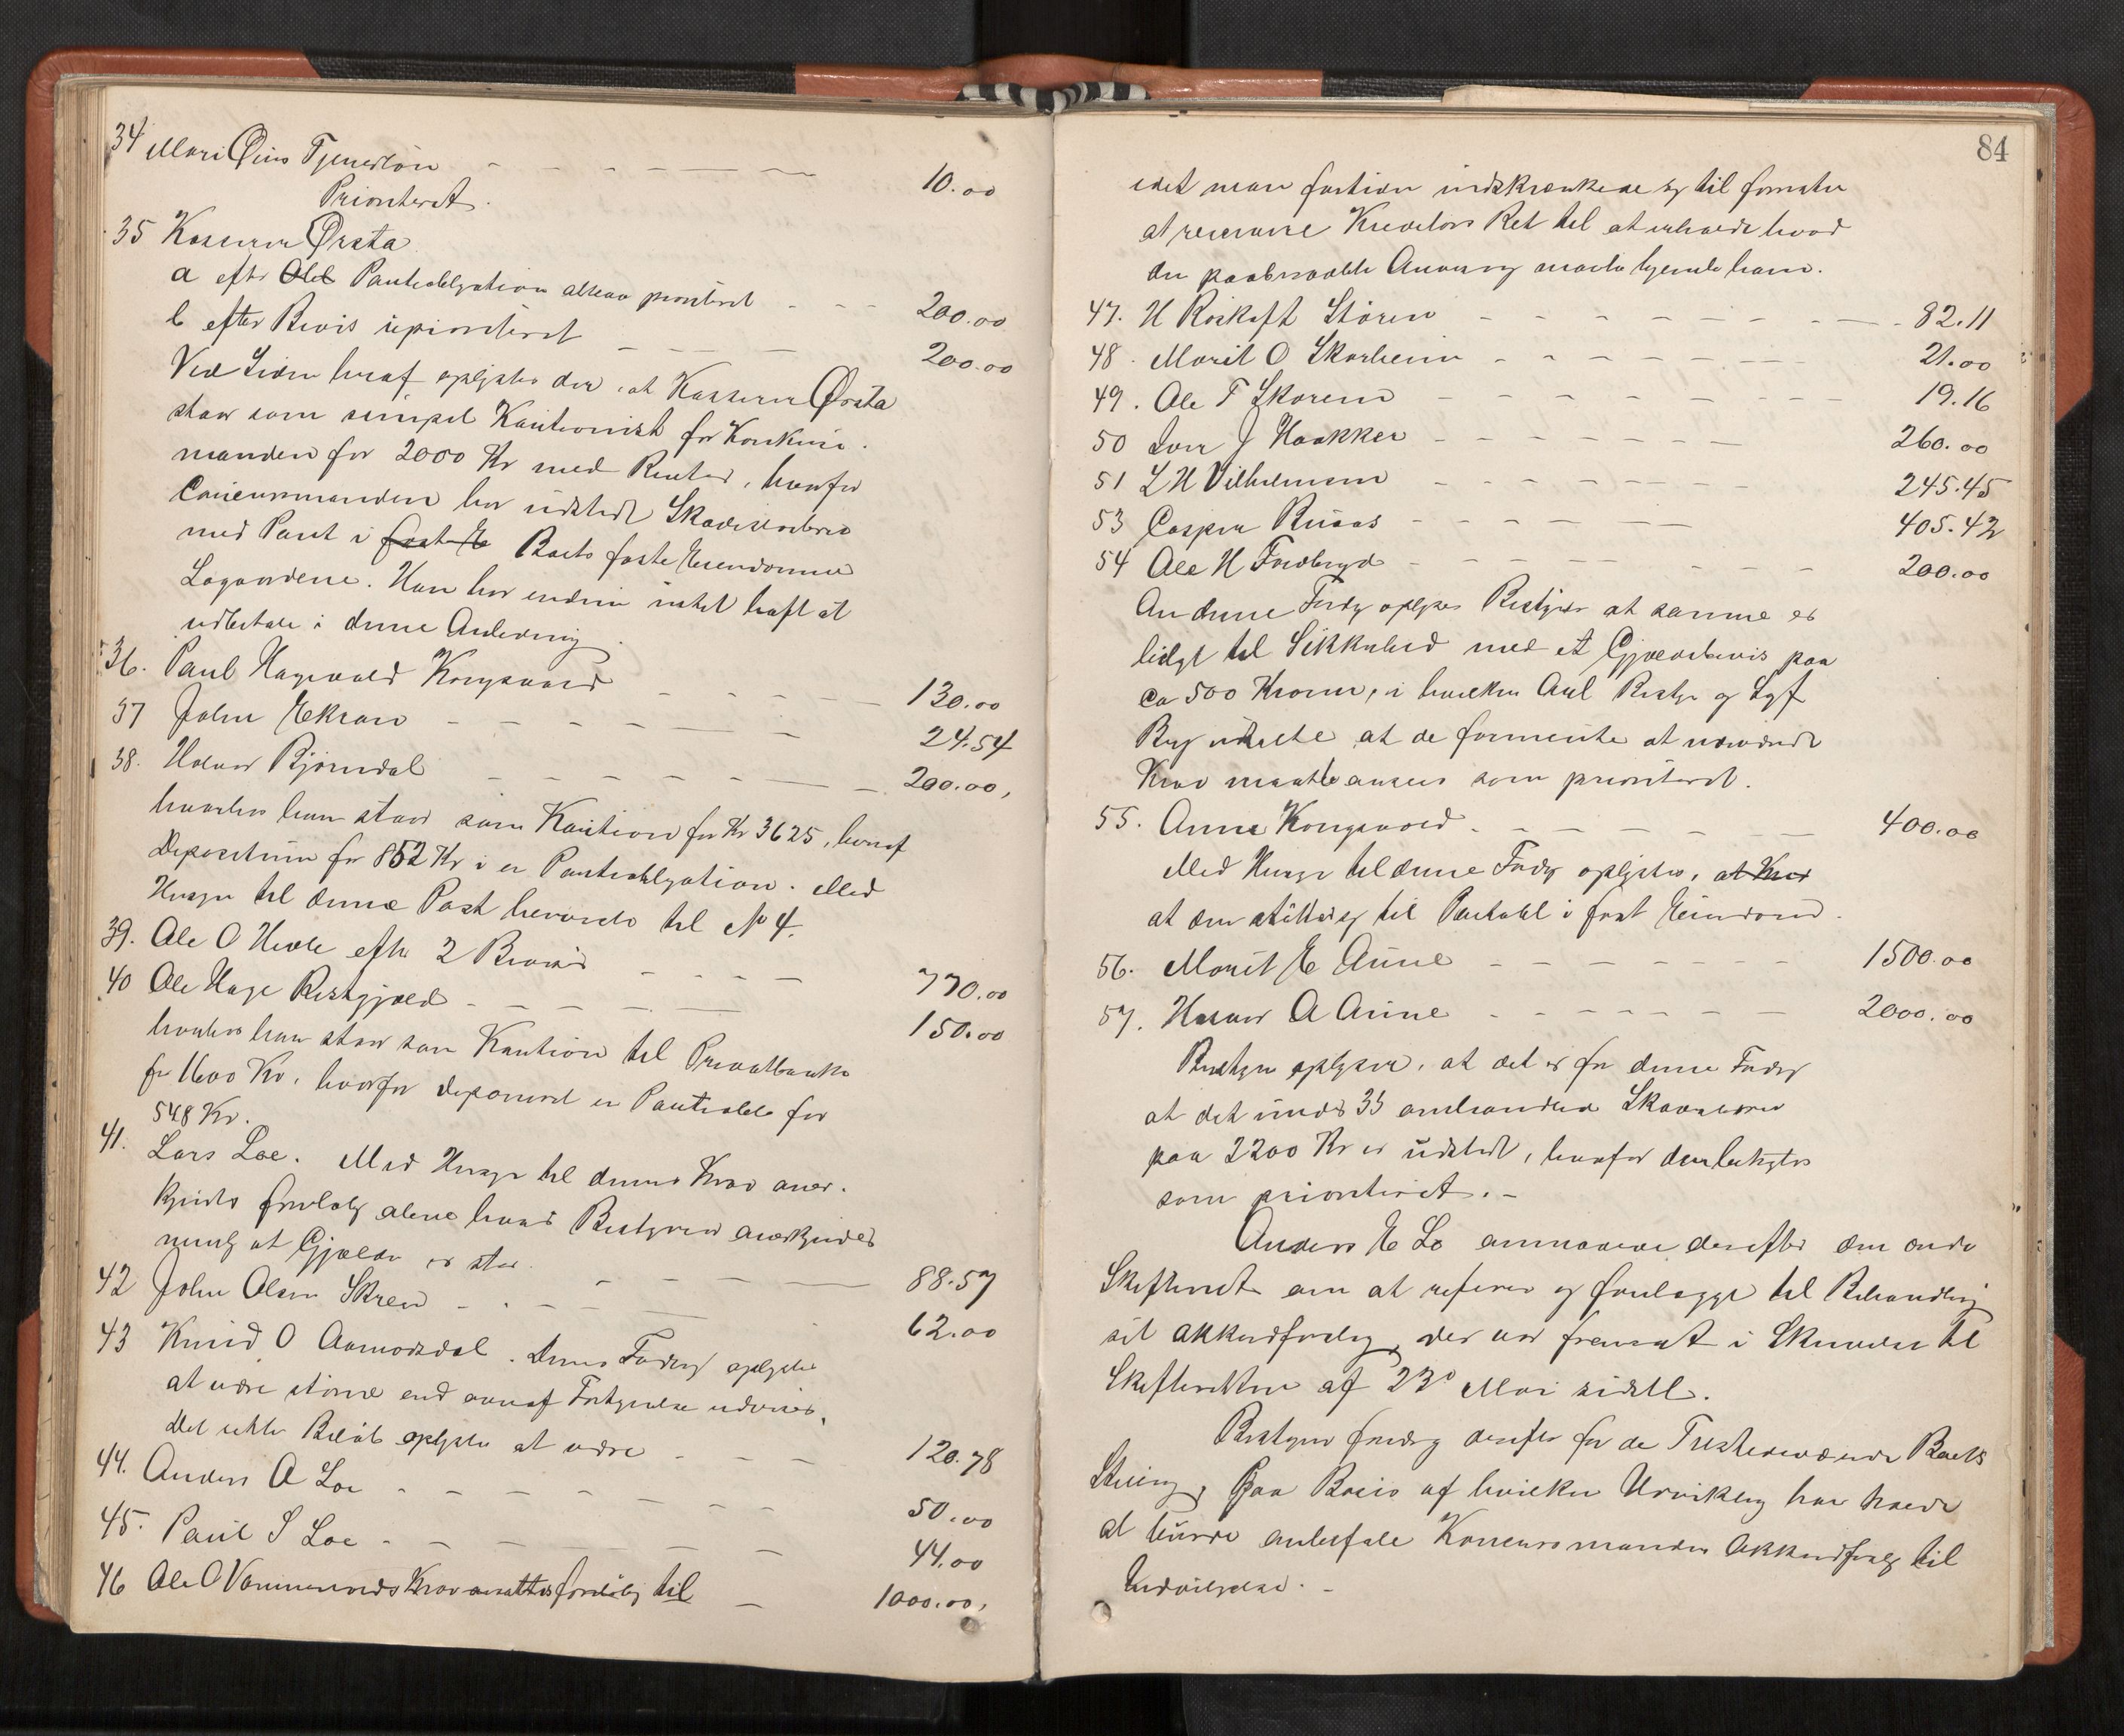 34 Mari Øins Tjenerløn - - - - - 10.00
Prioriteret.
35 Kasserer Ørsta
a efter Obl Pantiobligation alene prioriteret - - - 200.00
b efter Bevis uprioriteret - - - 200.00
Ved Siden heraf oplystes der, at Kasserer Ørsta
staar som simpel Kautionist for Konkurs-
manden for 2000 Kr med Renter, hvorfor
Concursmanden har udstedt Skadesløsbrev
med Pant i fast E Boets faste Eiendomme
Logaardene. Han har endnu intet havt at
udbetale i denne Anledning.
36. Paul Hagevold Kongsvold - - - - 130.00
37 John Ekran - - - - - 24.54
38. Halvor Bjørndal - - - - - 200.00,
hvorhos han staar som Kaution for Kr 3625, hvoraf
Depositum for 852 Kr i en Pantiobligation. Med
Hensyn til denne Post henvises til No 4.
39. Ole O Hevle efter 2 Beviser - - - - 770.00
40 Ole Hage Restgjæld - - - - - 150.00
hvorhos han staar som Kaution til Privatbanken
for 1600 Kr, hvorfor deponeret en Pantiobl for
548 Kr.
41. Lars Loe. Med Hensyn til dennes Krav aner-
kjendes foreløbig alene hvad Bestyreren anerkjender
nemlig at Gjælden er stor - - - 88.57
42 John Olsen Skren - - - - 62.00
43 Knud O Aamodsdal. Dennes Fordring oplystes
at være større end anført Fortegnelse udviser.
Det rette Beløb oplystes at være - - - 120.78
44. Anders A Loe - - - - - - - 50.00
45. Paul S Loe - - - - - - 44.00
46 Ole O Vammervolds Krav ansattes foreløbig til - 1000.00,
84
idet man fortiden indskrænkede sig til forøvrigt
at reservere Kreditors Ret til at erholde hvad
den paaberaabte Anvisning maatte hjemle ham.
47. H Roskaft Støren - - - - - - - - 82.11
48. Marit O Skarheim - - - - - - 21.00
49. Ole T Skorem - - - - - - - - 19.16
50 J Haakker - - - - - - - 260.00
51 L H Vilhelmsen - - - - - - 245.45
53 Casper Buaas - - - - - - 405.42
54 Ole H - - - - - - - 200.00
denne Fordg oplyser Bestyrer at samme er
til Sikkerhed med et Gjældsbevis paa
ca 500 Kroner, i hvilken Anl Bestyr og Sgf
at de formente at nævnte
Krav maatte ansees som prioriteret.
55. Anne Kongsvold - - - - - - 400.00
Med Hensyn til denne Fordg oplystes, at Kred
at den støtter sig til Pantobl i fast Eiendom.
56. Marit E Aune - - - - - - - 1500.00
57. Halvor A Aune - - - - - - - 2000.00
Bestyr oplyser, at det er for denne Fordrg
at det under 35 omhandlede Skadesbrev
paa 2200 Kr er udstedt, hvorfor den betragtes
som prioriteret. -
Anders E Lo anmodede derefter den ærede
Skifteret om at referere og forelægge til Behandling
sit Akkordforslag, der var fremsat i Skrivelse til
Skifteretten af 23de Mai sidstl.
Bestyrer foredrog derefter for de Tilstedeværende Boets
Stilling, paa Basis af hvilken Udvikling han troede
at burde anbefale Koncursmandens Akkordforslg til
Indvilgelse. -